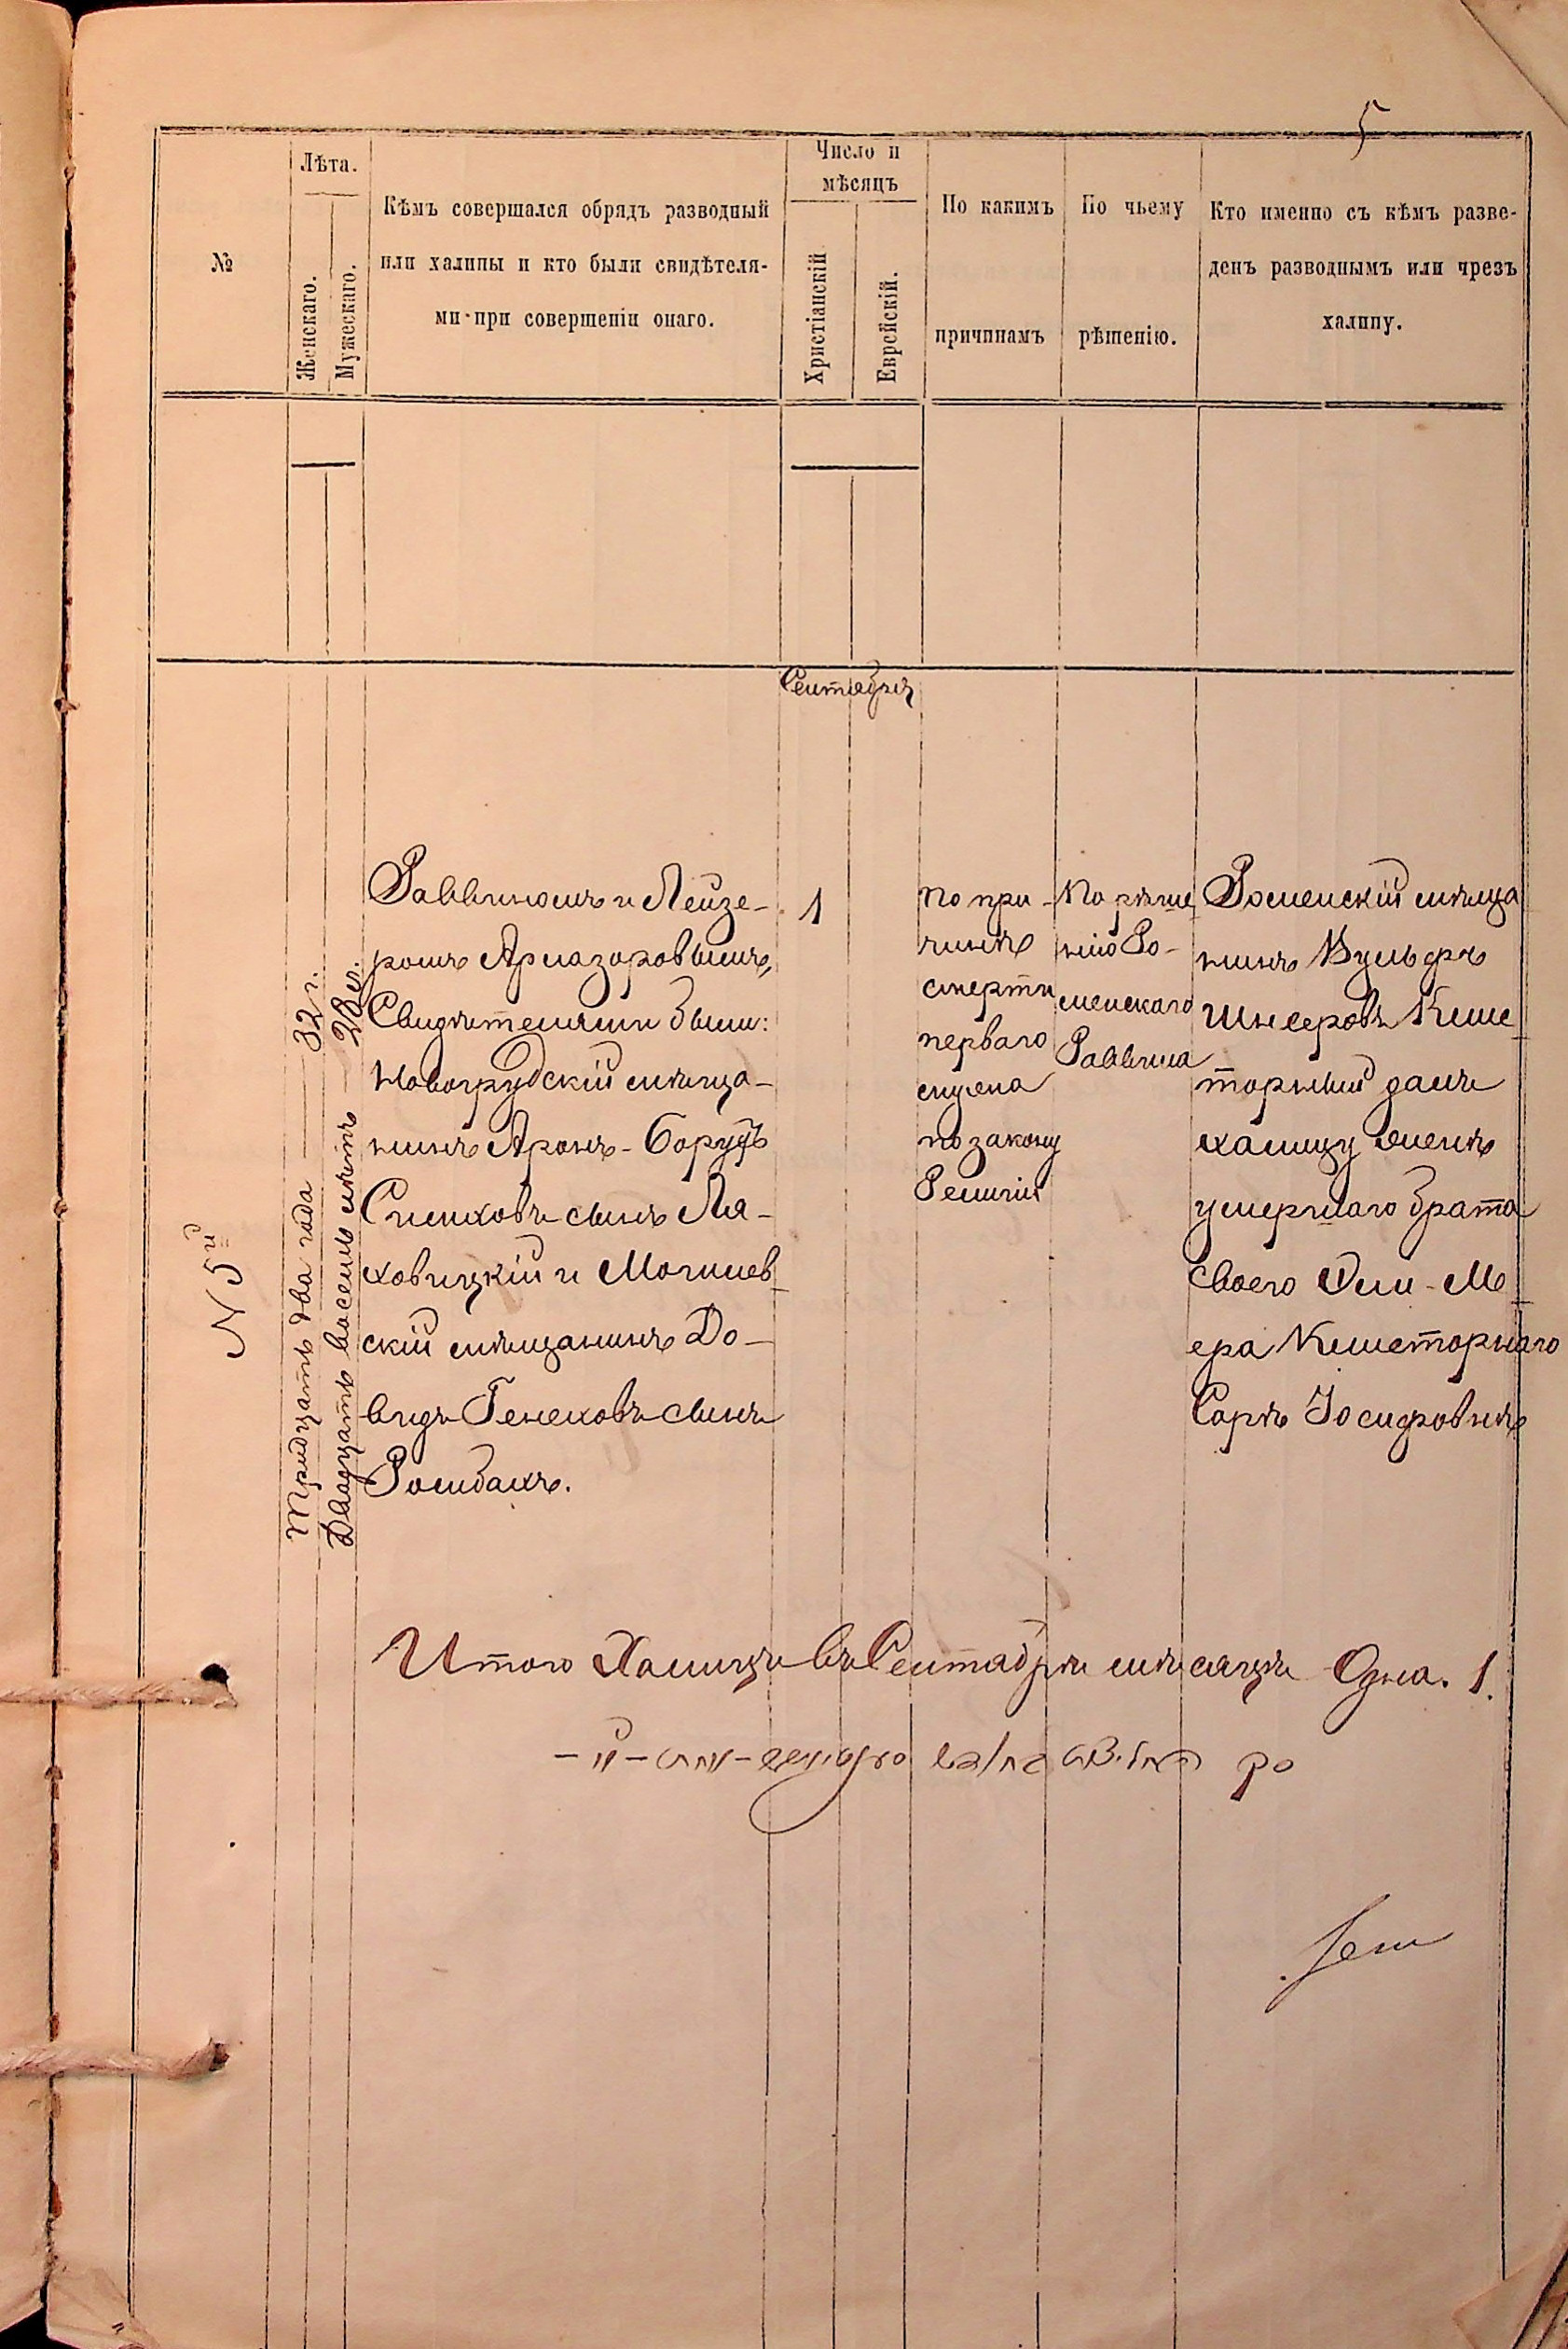 5
№
Лѣта.
Женскаго.
Мужескаго.
Кѣмъ совершался обрядъ разводный
или халицы и кто были свидѣтеля-
ми при совершеніи онаго.
Число и
мѣсяцъ
Христіанскій
Еврейскій.
По какимъ
причинамъ
По чьему
рѣшенію.
Кто именно съ кѣмъ разве-
денъ разводнымъ или чрезъ
халицу.
Сентября
N 5й
Тридцать два года — 32 г.
Двадцать восемь лѣтъ — 28 л.
Раввиномъ и Лейзе-
ромъ
Свидѣтелями были:
Новогрудскій мѣща-
нинъ Аронъ-Борухъ
Симховъ сынъ Ля-
ховицкій и Могилев-
скій мѣщанинъ До-
видъ Генеховъ сынъ
1
По при-
чинѣ
смерти
перваго
мужа
по закону
Религіи
По рѣше-
нію Ро-
менскаго
Раввина
Роменскій мѣща
нинъ Вульфъ
Шнееровъ Клише
торный далъ
халицу женѣ
умершаго брата
своего Эли-Ме-
ера Клишеторнаго
Сорѣ Іосифовнѣ
Итого Халицъ въ Сентябрѣ мѣсяцѣ Одна. 1.